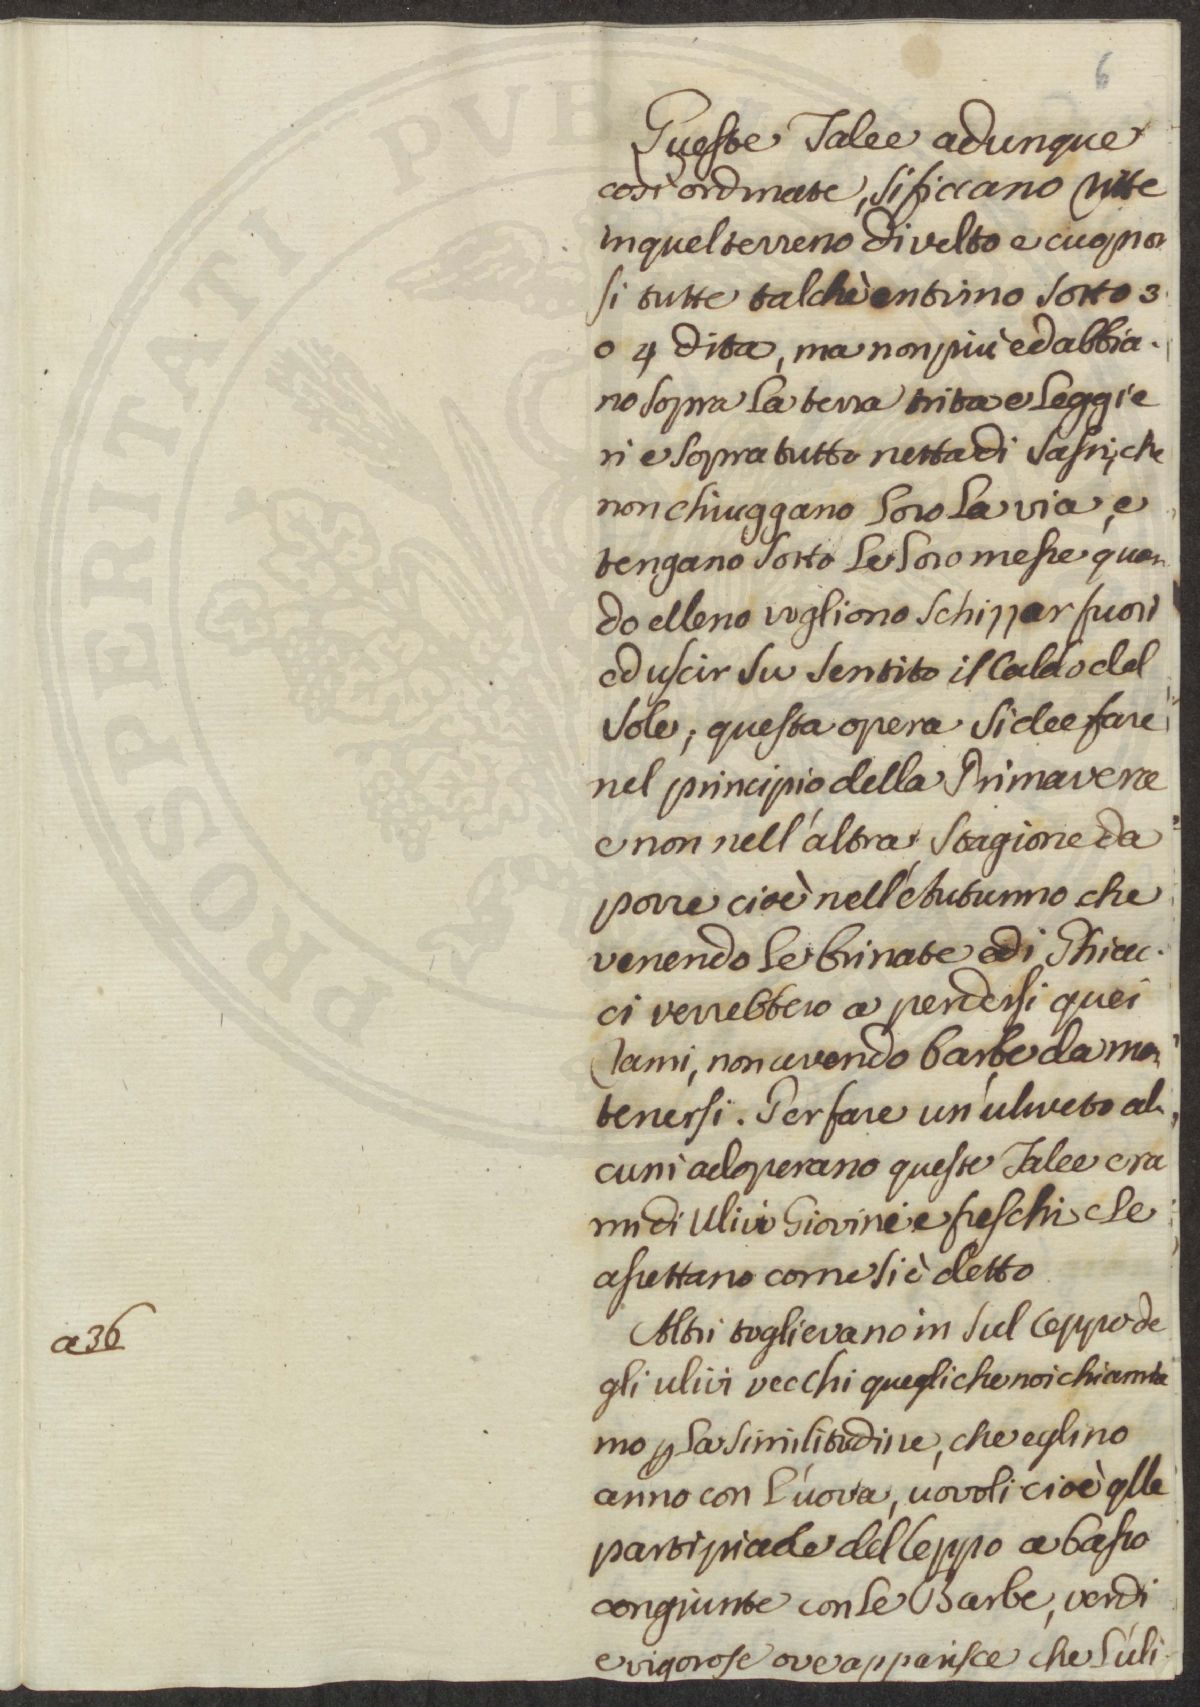 6
Queste Talee adunque
così ordinate, si ficcano ritte
in quel terreno divelto e cuopron
si tutte talchè entrino sotto 3
o 4 dita, ma non più ed abbia-
no sopra la terra trita e leggie
ri e sopra tutto netta di sassi, che
non chiuggano loro la via, e
tengano sotto le loro messe quan
do elleno vogliono schippar fuori
ed uscir su sentito il Caldo del
Sole; questa opera si dee fare
nel principio della Primavera
e non nell'altra stagione da
porre cioè nell'Autunno che
venendo le brinate ed i Ghiac-
ci verrebbero a perdersi quei
Rami, non avendo barbe da man
tenersi. Per fare un'uliveto al-
cuni adoperano queste Talee e ra
mi di Ulivi Giovini e freschi e le
assettano come si è detto
Altri toglievano in sul Ceppo de
a 36
gli ulivi vecchi quegli che noi chiamia
mo p la similitudine, che eglino
anno con l'uova, uovoli cioè qlle
parti piade del Ceppo a basso
congiunte con le Barbe, verdi
e vigorose ove apparisce che l'uli-
PROSPERITATI PUBLICAE